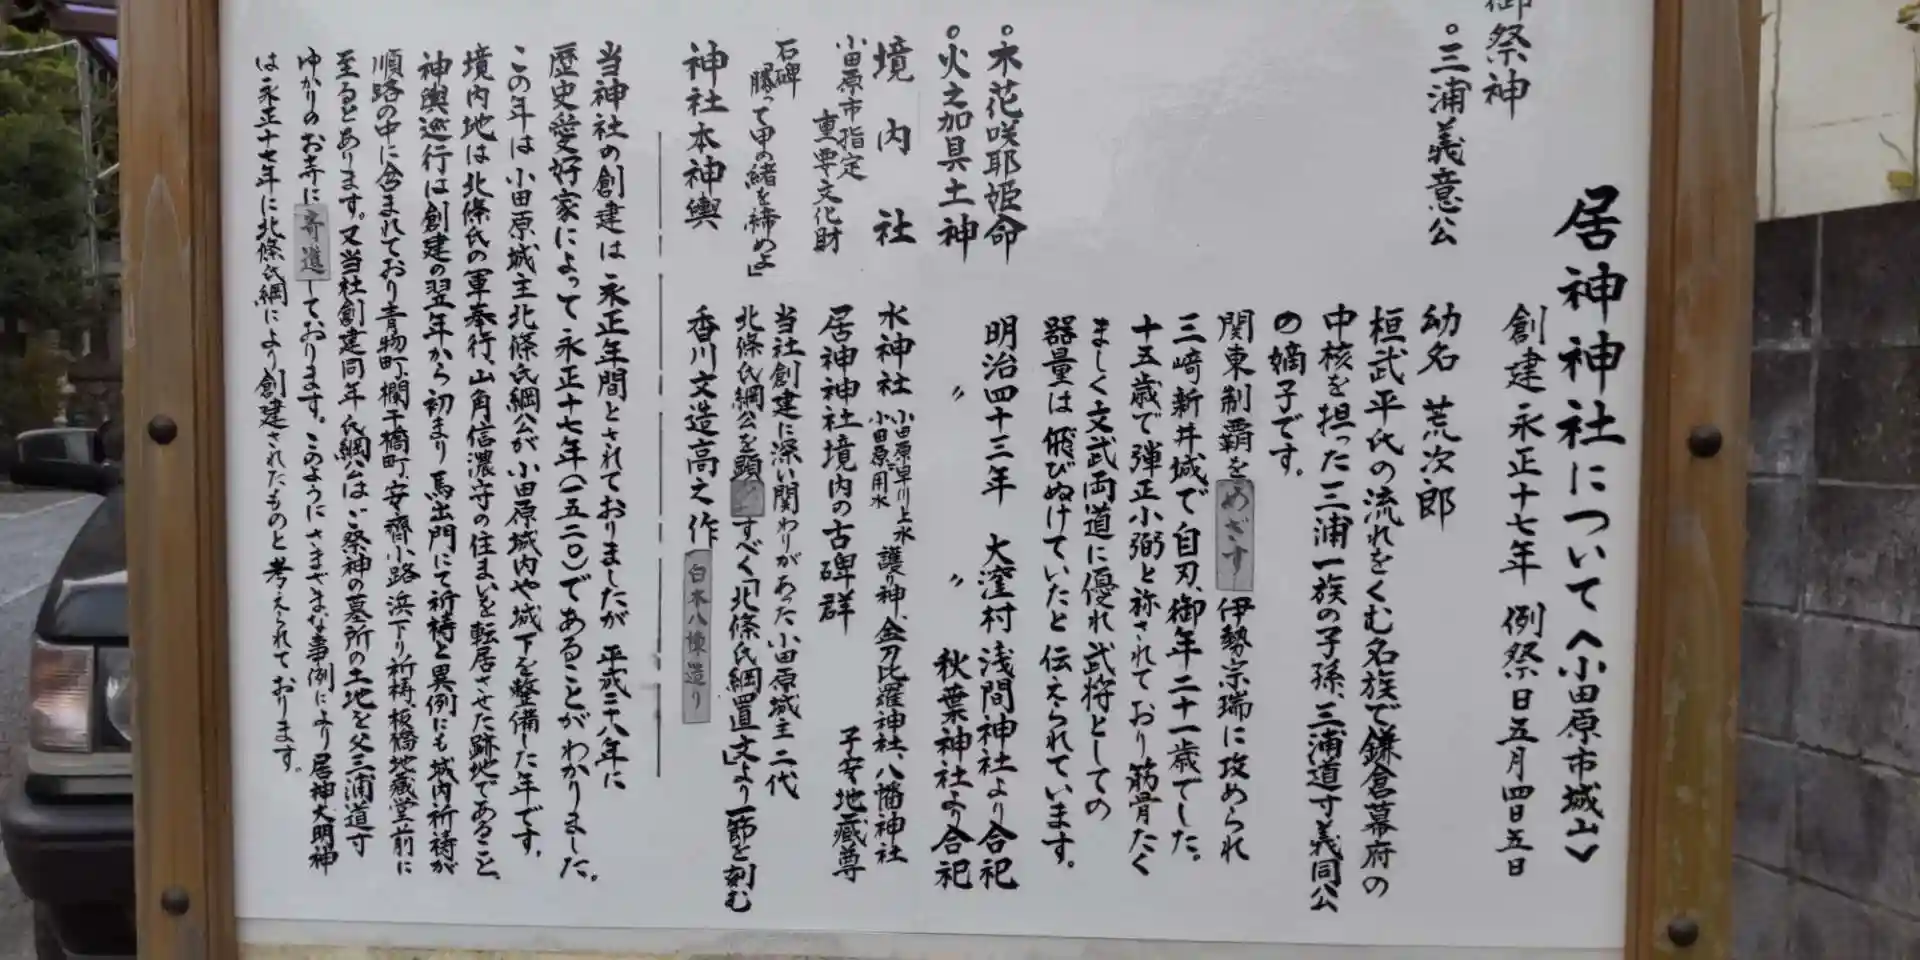 居神神社について〈小田原市城山〉
創建 永正十七年 例祭日五月四日五日
御祭神
○三浦義意公
幼名 荒次郎
桓武平氏の流れをくむ名族で鎌倉幕府の
中核を担った三浦一族の子孫、三浦道寸義同公
の嫡子です。
関東制覇をめざす伊勢宗瑞に攻められ
三崎新井城で自刃、御年二十一歳でした。
十五歳で弾正小弼と称されており筋骨たく
ましく文武両道に優れ武将としての
器量は飛びぬけていたと伝えられています。
○木花咲耶姫命 明治四十三年 大窪村 浅間神社より合祀
○火之加具土神 〃 〃 秋葉神社より合祀
境内社 水神社 小田原早川上水 小田原用水 護り神、金刀比羅神社、八幡神社
子安地蔵尊
小田原市指定 重要文化財 居神神社境内の古碑群
石碑 勝って甲の緒を締めよ」 当社創建に深い関わりがあった小田原城主二代
北條氏綱公を顕すべく「北條氏綱置文」より一節を刻む
神社本神輿 香川文造高之作 白木八棟造り
当神社の創建は永正年間とされておりましたが平成二十八年に
歴史愛好家によって永正十七年(一五二〇)であることがわかりました。
この年は小田原城主北條氏綱公が小田原城内や城下を整備した年です。
境内地は北條氏の軍奉行、山角信濃守の住まいを転居させた跡地であること、
神輿巡行は創建の翌年から初まり馬出門にて祈祷と異例にも城内祈祷が
順路の中に含まれており青物町、欄干橋町、安斎小路、浜下り祈祷、板橋地蔵堂前に
至るとあります。又当社創建同年氏綱公は、ご祭神の墓所の土地を父三浦道寸
ゆかりのお寺に寄進しております。このようにさまざまな事例により居神大明神
は永正十七年に北條氏綱により創建されたものと考えられております。